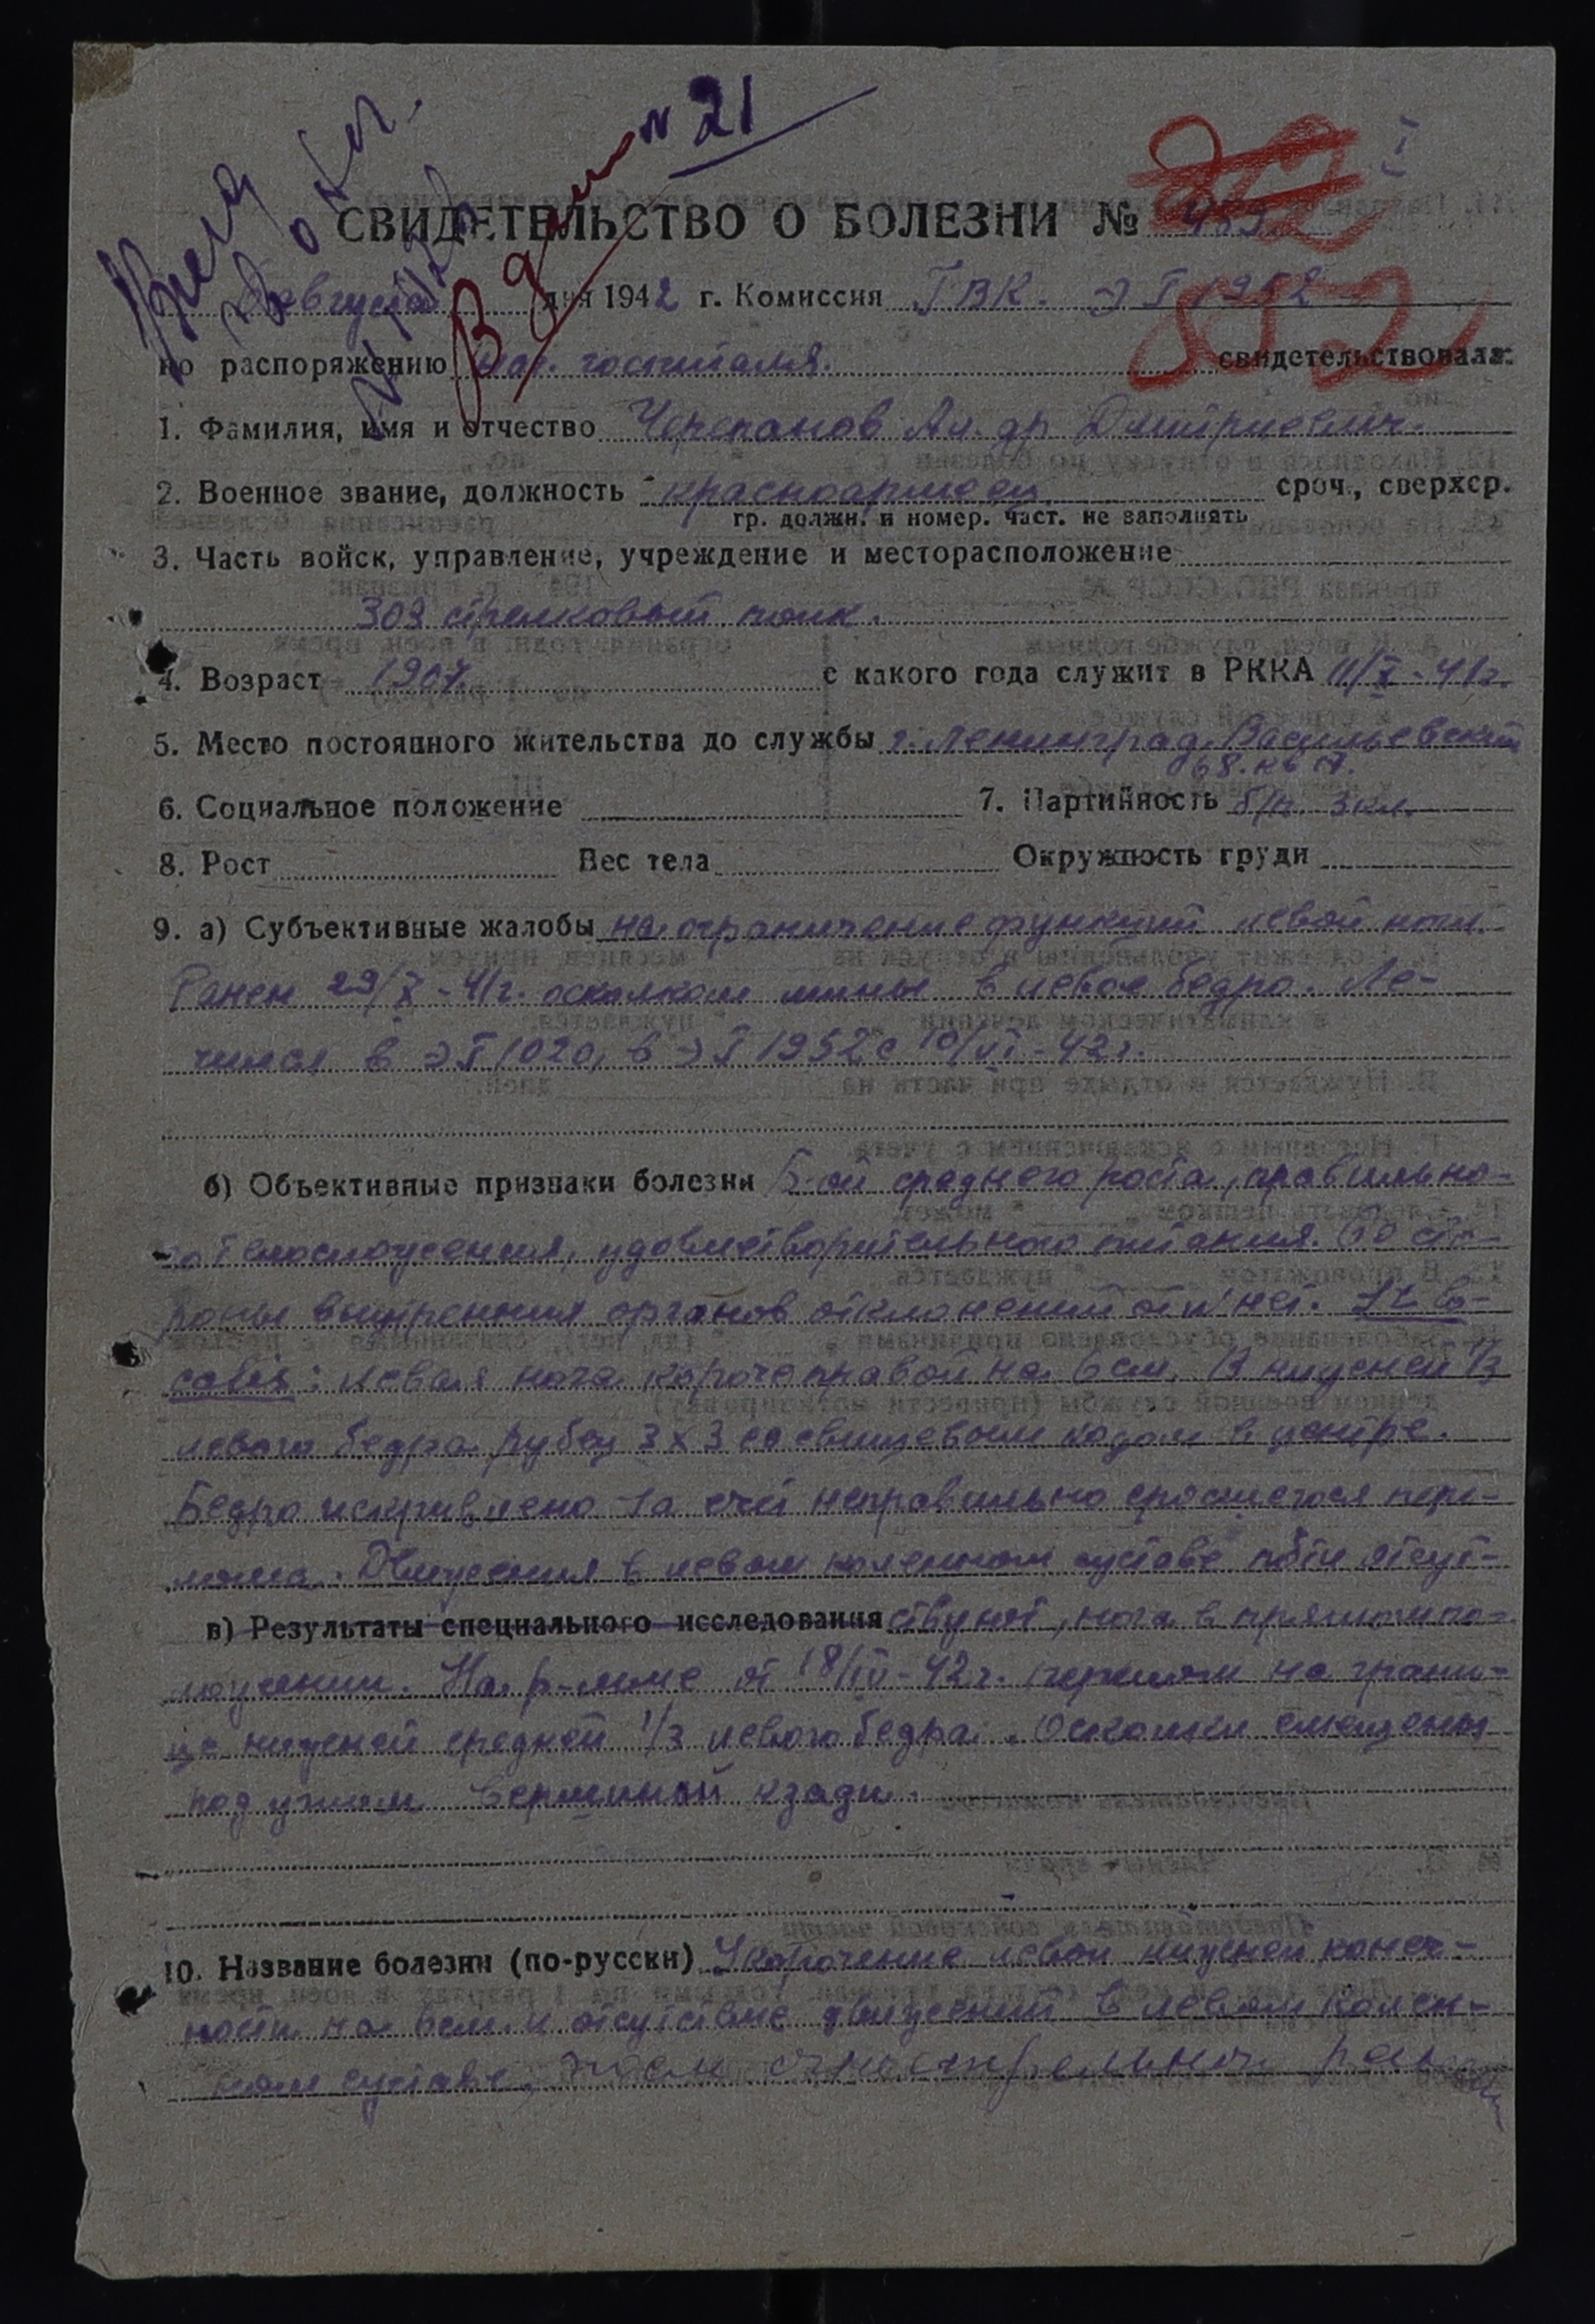 № 21
СВИДЕТЕЛЬСТВО О БОЛЕЗНИ №
августа дня 1942 г. Комиссия ГВК. ЭГ 1952
802
по распоряжению нач. госпиталя. свидетельствовала:
1. Фамилия, имя и отчество Черепанов Ал-др Дмитриевич.
2. Военное звание, должность красноармеец сроч., сверхср.
гр. должн. и номер. част. не заполнять
3. Часть войск, управление, учреждение и месторасположение
309 стрелковый полк.
4. Возраст 1907 с какого года служит в РККА 11/X-41г.
5. Место постоянного жительства до службы г. Ленинград, Васильевский
68. кв 17.
6. Социальное положение 7. Партийность б/п. 3 кл.
8. Рост Вес тела Окружность груди
9. а) Субъективные жалобы на ограничение функций левой ноги.
Ранен 29/X-41г. осколком мины в левое бедро. Ле-
чился в ЭГ 1020, в ЭГ 1952 с 10/VI-42г.
б) Объективные признаки болезни Б-ой среднего роста, правильно-
го телосложения, удовлетворительного питания. Со сто-
роны внутренних органов отклонений от N нет. St. lo-
calis: левая нога короче правой на 6 см. В нижней 1/3
левого бедра рубец 3х3 со свищевым ходом в центре.
Бедро искривлено за счет неправильно сросшегося пере-
лома. Движения в левом коленном суставе почти отсут-
в) Результаты специального исследования ствуют, нога в прямом по-
ложении. На р-мме от 18/IV-42г. перелом на грани-
це нижней средней 1/3 левого бедра. Осколки смещены
под углом вершиной кзади.
10. Название болезни (по-русски) Укорочение левой нижней конеч-
ности на 6см. и отсутствие движений в левом колен-
ном суставе, после огнестрельного ран